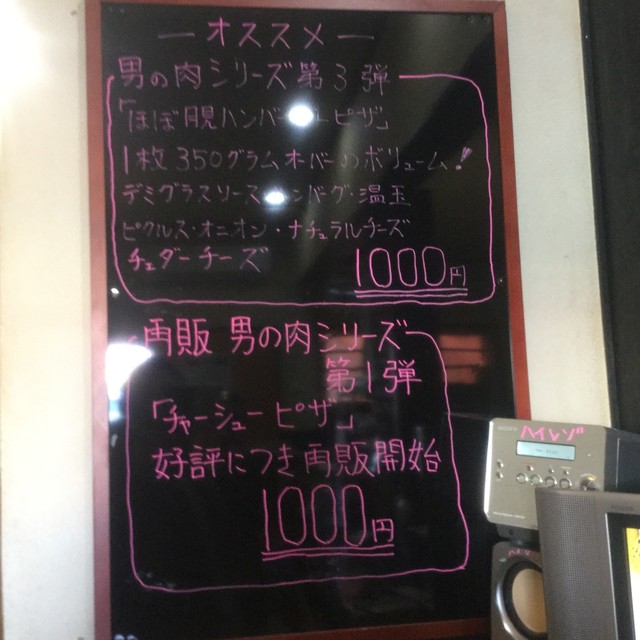 オススメ
男の肉シリーズ第3弾
「ほぼ月見ハンバーガーピザ」
1枚350グラムオーバーのボリューム!
デミグラスソース・ハンバーグ・温玉
ピクルス・オニオン・ナチュラルチーズ
チェダーチーズ
1000円
再販 男の肉シリーズ
第1弾
「チャーシューピザ」
好評につき再販開始
1000円
SONY
ハイレゾ